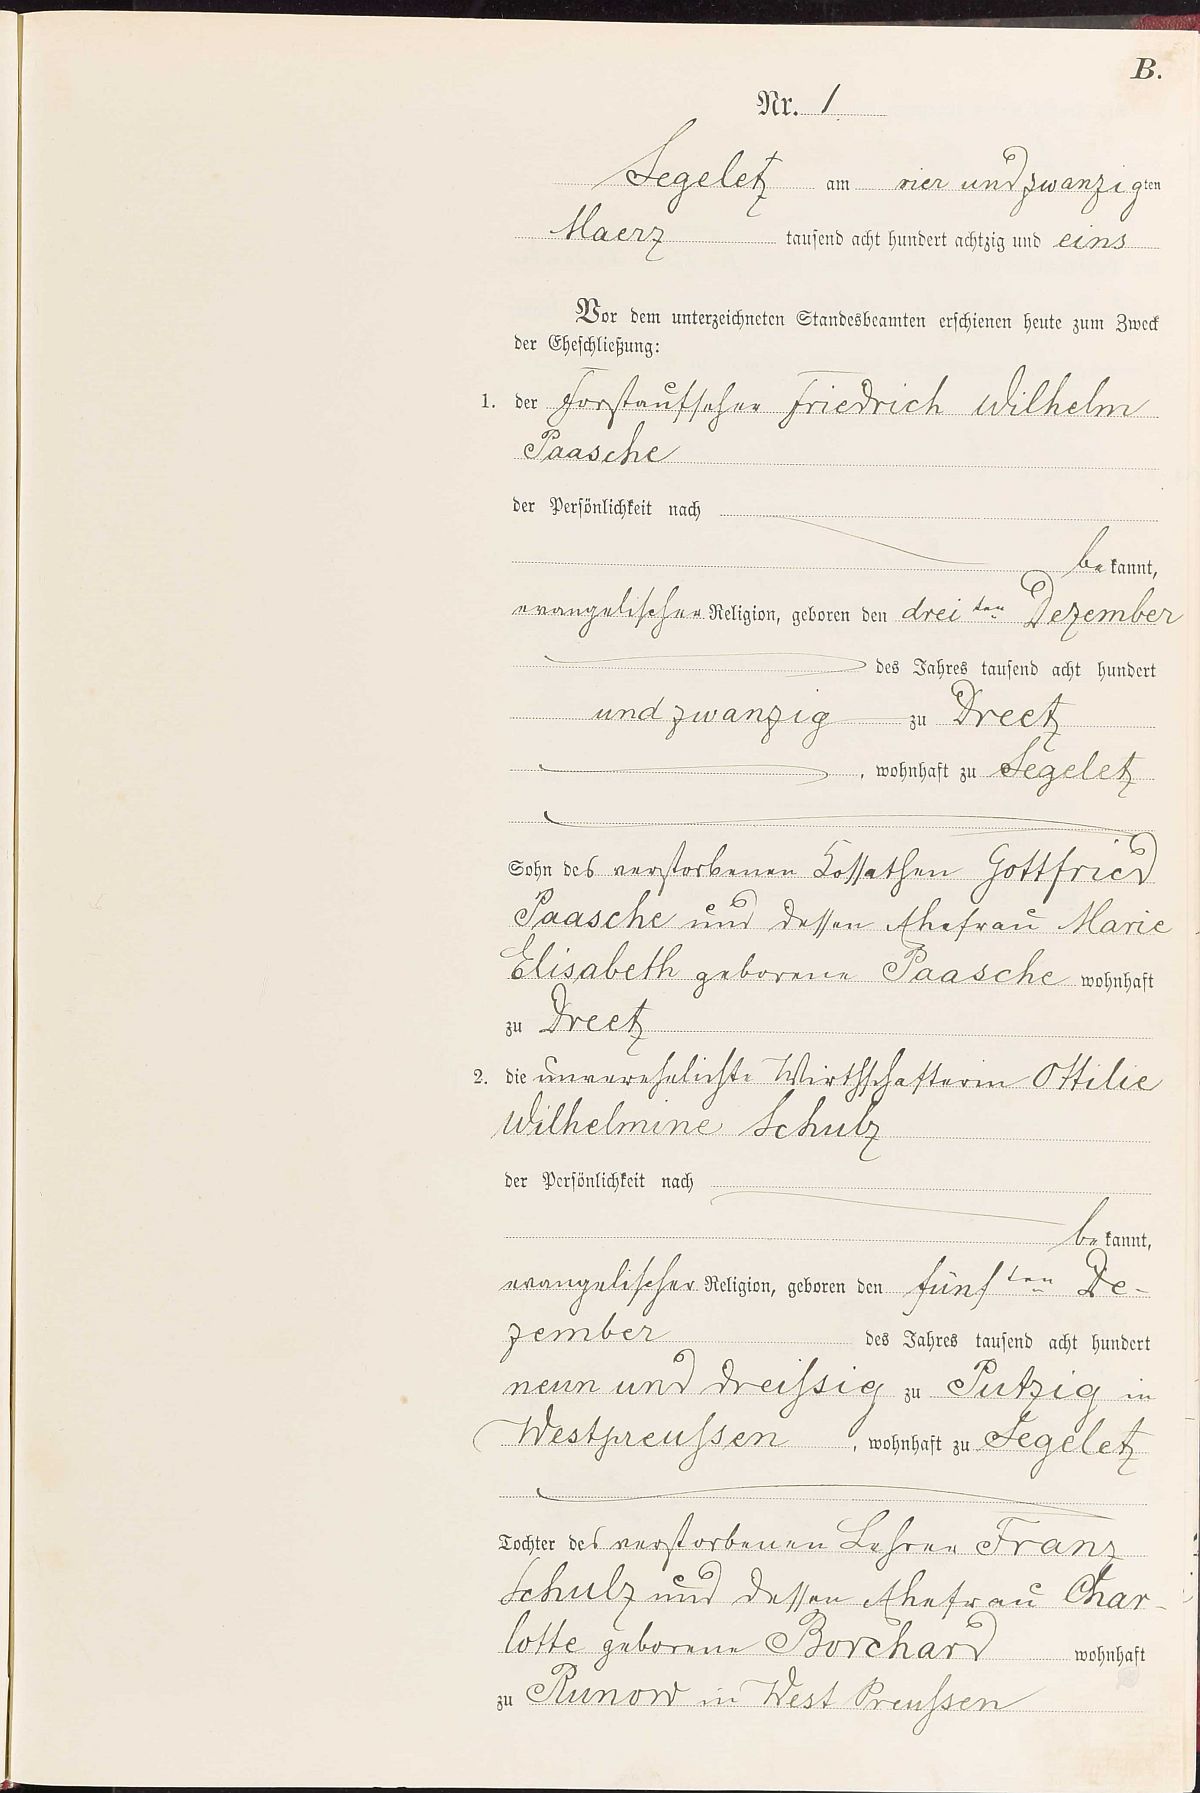 B.
Nr. 1
Segeletz am vier und zwanzigten
Maerz tausend acht hundert achtzig und eins
Vor dem unterzeichneten Standesbeamten erschienen heute zum Zweck
der Eheschließung:
1. der Forstaufseher Friedrich Wilhelm
Paasche
der Persönlichkeit nach
bekannt,
evangelischer Religion, geboren den dreiten Dezember
des Jahres tausend acht hundert
und zwanzig zu Dreetz
, wohnhaft zu Segeletz
Sohn des verstorbenen Kossathen Gottfried
Paasche und dessen Ehefrau Marie
Elisabeth geborene Paasche wohnhaft
zu Dreetz
2. die unverehelichte Wirthschafterin Ottilie
Wilhelmine Schulz
der Persönlichkeit nach
bekannt,
evangelischer Religion, geboren den fünften De-
zember des Jahres tausend acht hundert
neun und dreißsig zu Putzig in
Westpreußsen, wohnhaft zu Segeletz
Tochter des verstorbenen Lehrer Franz
Schulz und dessen Ehefrau Char-
lotte geborene Borchard wohnhaft
zu Runow in West Preußsen